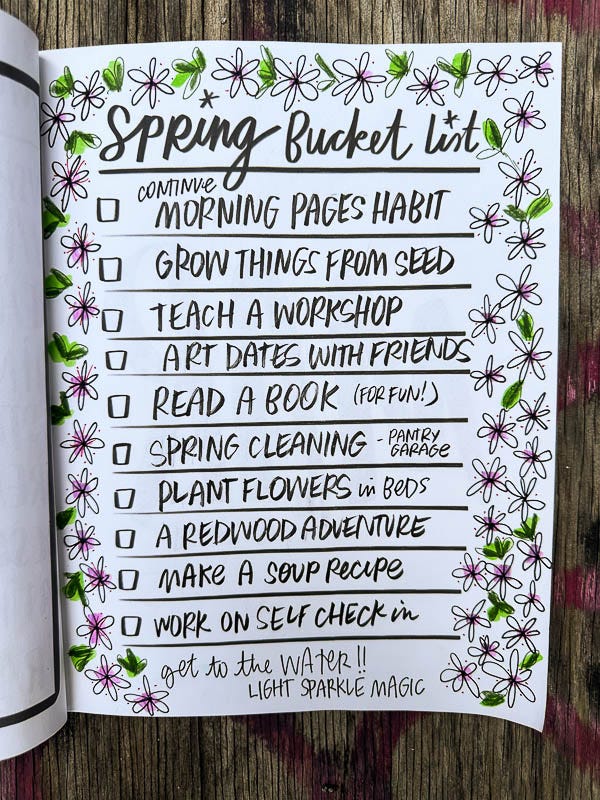 Spring Bucket List
CONTINUE
MORNING PAGES HABIT
GROW THINGS FROM SEED
TEACH A WORKSHOP
ART DATES WITH FRIENDS
READ A BOOK (FOR FUN!)
SPRING CLEANING - PANTRY
GARAGE
PLANT FLOWERS in BEDS
A REDWOOD ADVENTURE
MAKE A SOUP RECIPE
WORK ON SELF CHECK in
get to the WATER!!
LIGHT SPARKLE MAGIC